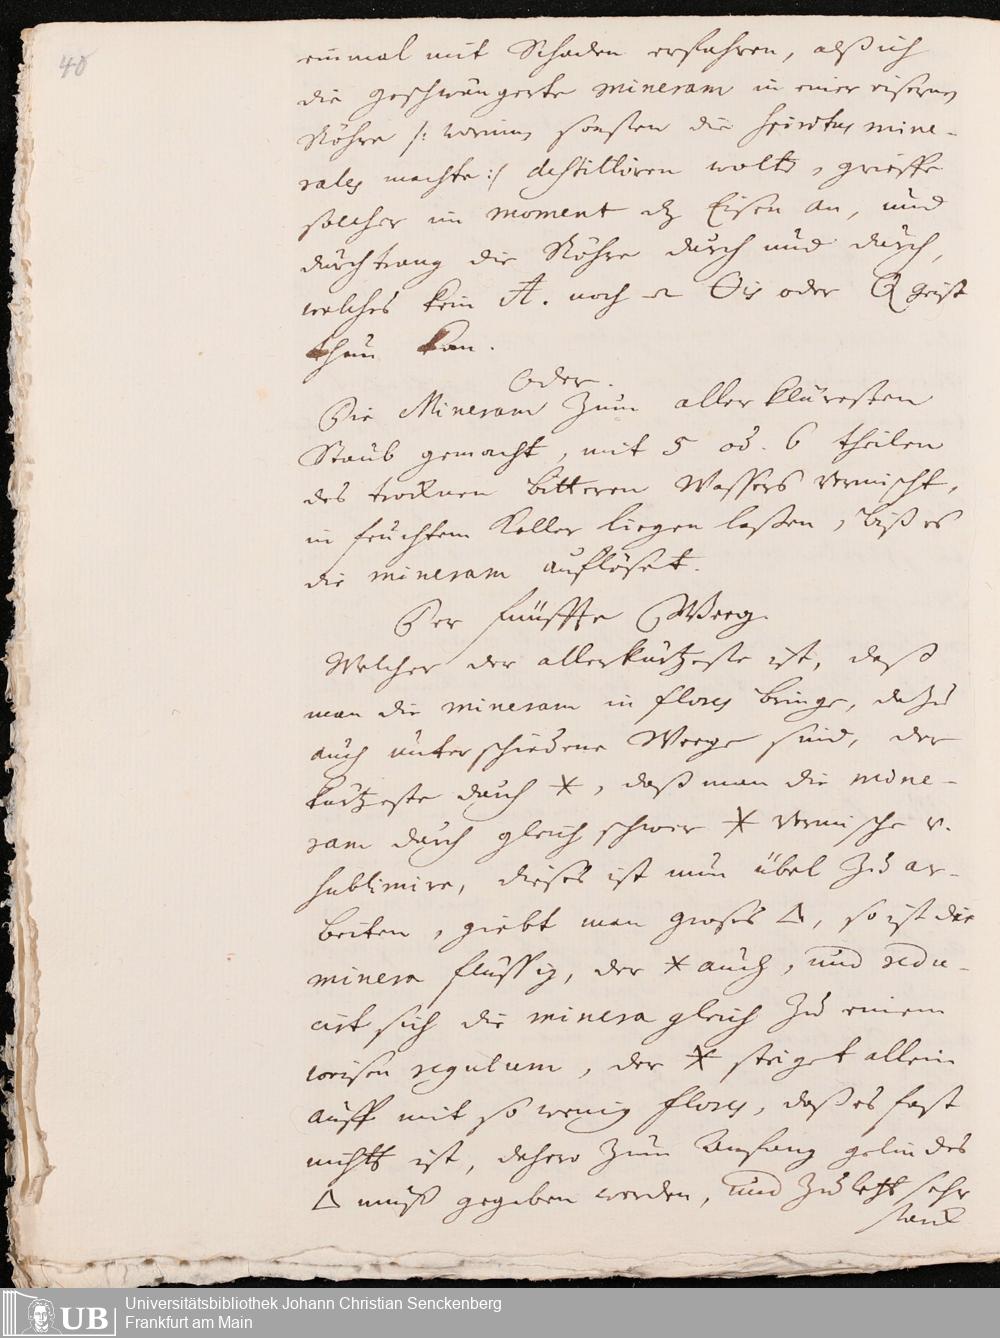 40
einmal mit Schaden erfahren, alß ich
die geschwängerte mineram in einer eisernen
Röhre /: worinn sonsten die spiritus mine-
rales machte :/ destilliren wolte, grieffe
solcher im moment das Eisen an, und
durchtrang die Röhre durch und durch,
welches kein noch oder geist
thun kan.
Oder.
Die Mineram zum aller kläresten
Staub gemacht, mit 5 od. 6 theilen
des trocknen bitteren Wassers vermischt,
in feuchtem Keller liegen laßen, biß es
die mineram auflöset.
Der fünffte Weeg.
Welcher der allerkürtzeste ist, daß
man die mineram in flores bringe, dazu
auch unterschiedene Weege sind, der
kürtzeste durch 🞶, daß man die mine-
ram durch gleich schwer 🞶 vermische v.
sublimire, dieses ist nun übel zu ar-
beiten, giebt man groses △, so ist die
minera flüssig, der 🞶 auch, und redu-
cirt sich die minera gleich zu einem
weisen regulum, der 🞶 steiget allein
auff mit so wenig flores, daß es fast
nichts ist, dahero zum Anfang gelindes
△ muß gegeben werden, und zuletzt sehr
starck
UB
Universitätsbibliothek Johann Christian Senckenberg
Frankfurt am Main